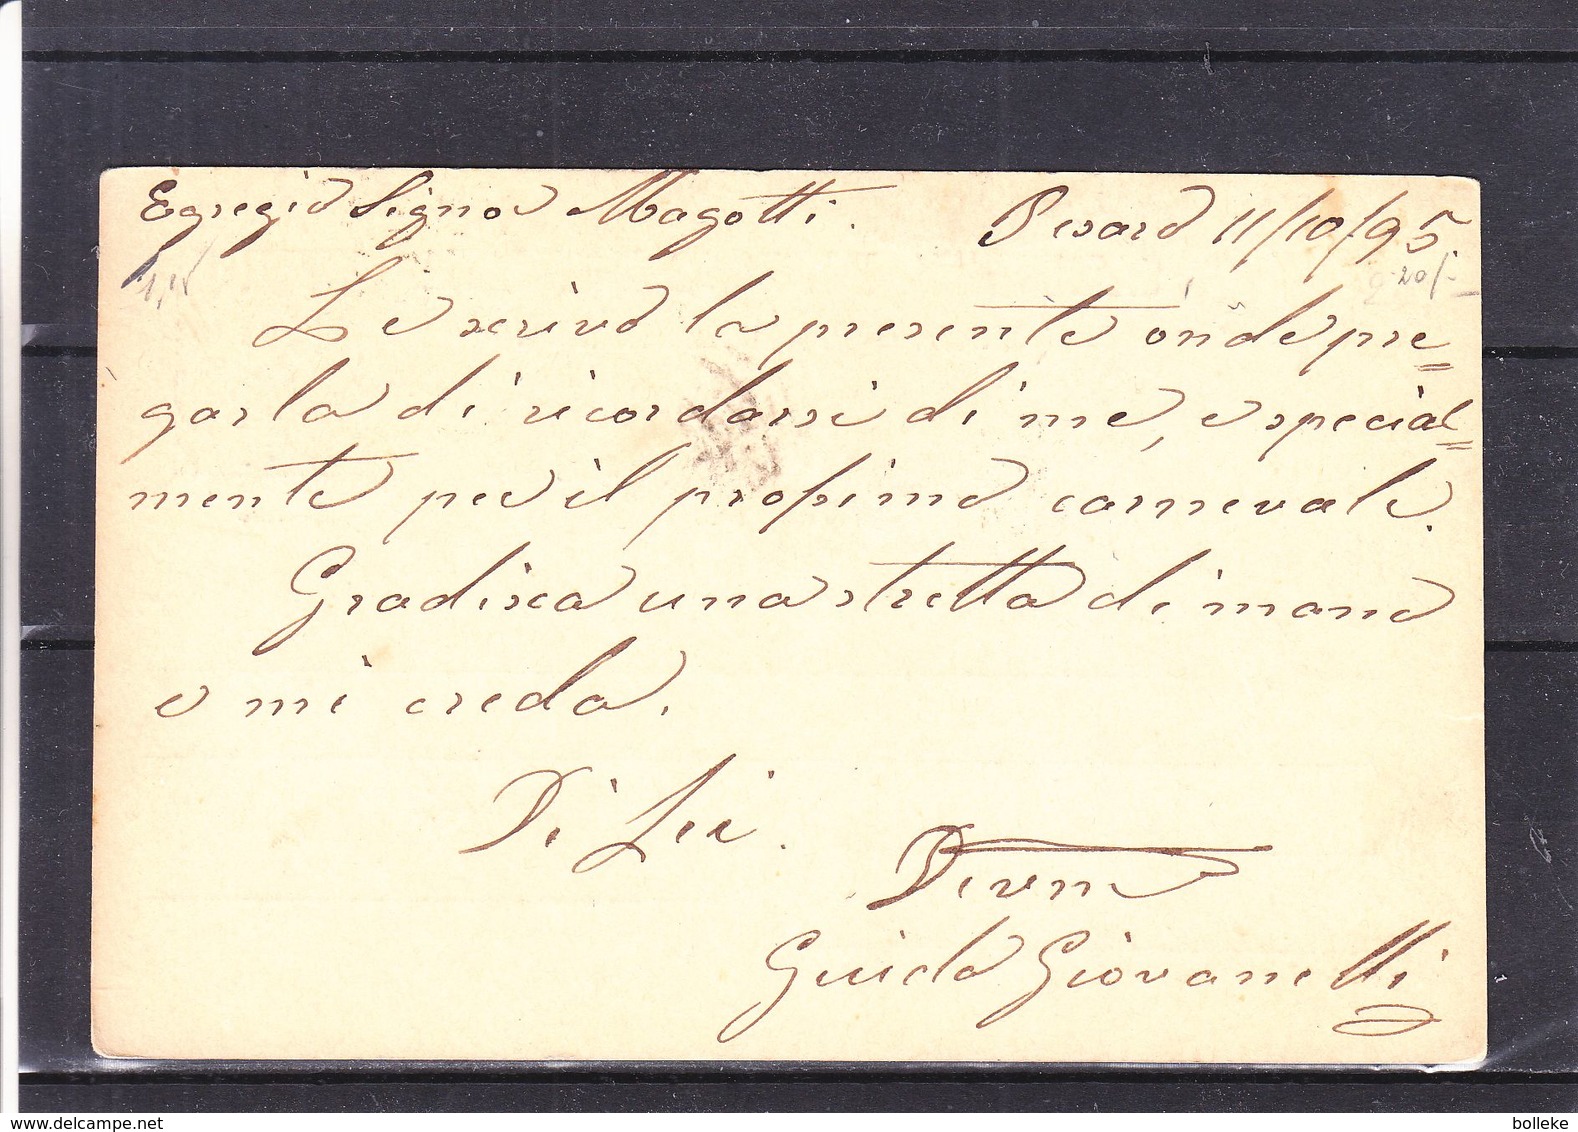 Egregio Signor Magotti. Pesaro 11/10/95.
20/-
Le scrivo la presente onde pre=
garla di ricordarsi di me, e special=
mente per il prossimo carnevale.
Gradisca una stretta di mano
e mi creda.
Di Lei.
Devm
Guido Giovanelli
www.delcampe.net
bolleke